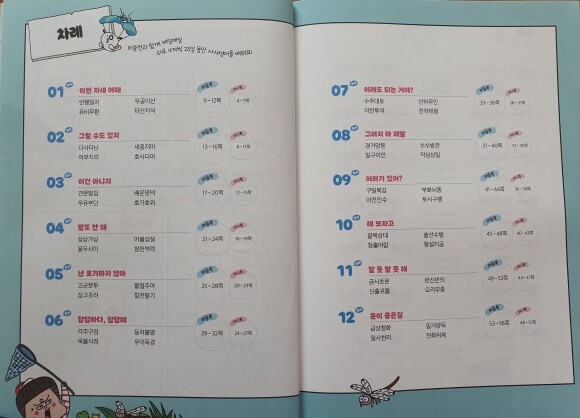 차례
하루 4개씩 25일 동안 사자성어를 배워요!
01 이런 자세 어때
언행일치 우공이산
유비무환 타산지석
9~12쪽 4~7쪽
02 그럴 수도 있지
다사다난 새옹지마
어부지리 호사다마
13~16쪽 8~11쪽
03 이건 아니지
견문발검 배은망덕
우유부단 호가호위
17~20쪽 12~15쪽
04 말도 안 돼
설상가상 어불성설
용두사미 청천벽력
21~24쪽 16~19쪽
05 난 포기하지 않아
고군분투 불철주야
삼고초려 칠전팔기
25~28쪽 20~23쪽
06 답답하다, 답답해
각주구검 동하불명
목불식정 우이독경
29~32쪽 24~27쪽
07 이래도 되는 거야?
수주대토 안하무인
아전투석 천하태평
33~36쪽 28~31쪽
08 그러지 마 제발
경거망동 수수방관
일구이언 작심삼일
37~40쪽 32~35쪽
09 이러기 있어?
구밀복검 부화뇌동
아전인수 토사구팽
41~44쪽 36~39쪽
10 해 보자고
괄목상대 솔선수범
청출어람 형설지공
45~48쪽 40~43쪽
11 말 못 할 못 해
금시초문 반신반의
신출귀몰 오리무중
49~52쪽 44~47쪽
12 운이 좋은걸
금상첨화 일거양득
일사천리 전화위복
53~56쪽 48~51쪽